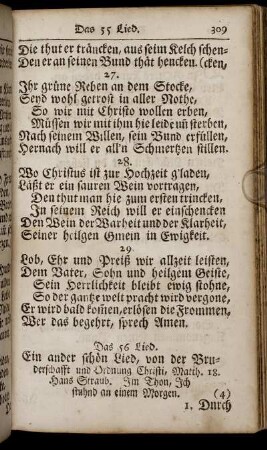 Das 55 Lied. 309
Die thut er träncken, aus seim Kelch schen-
Den er an seinen Bund thät hencken. (cken,
27.
Ihr grüne Reben an dem Stocke,
Seyd wohl getrost in aller Nothe,
So wir mit Christo wollen erben,
Müssen wir mit ihm hie leidē uñ sterben,
Nach seinem Willen, sein Bund erfüllen,
Hernach will er all'n Schmertzen stillen.
28.
Wo Christus ist zur Hochzeit g'laden,
Läßt er ein sauren Wein vortragen,
Den thut man hie zum ersten trincken,
In seinem Reich will er einschencken
Den Wein der Warheit und der Klarheit,
Seiner heilgen Gmein in Ewigkeit.
29.
Lob, Ehr und Preiß wir allzeit leisten,
Dem Vater, Sohn und heilgem Geiste,
Sein Herrlichkeit bleibt ewig stohne,
So der gantze welt pracht wird vergone,
Er wird bald kom̄en, erlösen die Frommen,
Wer das begehrt, sprech Amen.
Das 56 Lied.
Ein ander schön Lied, von der Bru-
derschafft und Ordnung Christi, Matth. 18.
Hans Straub. Im Thon, Ich
stuhnd an einem Morgen. (4)
1. Durch